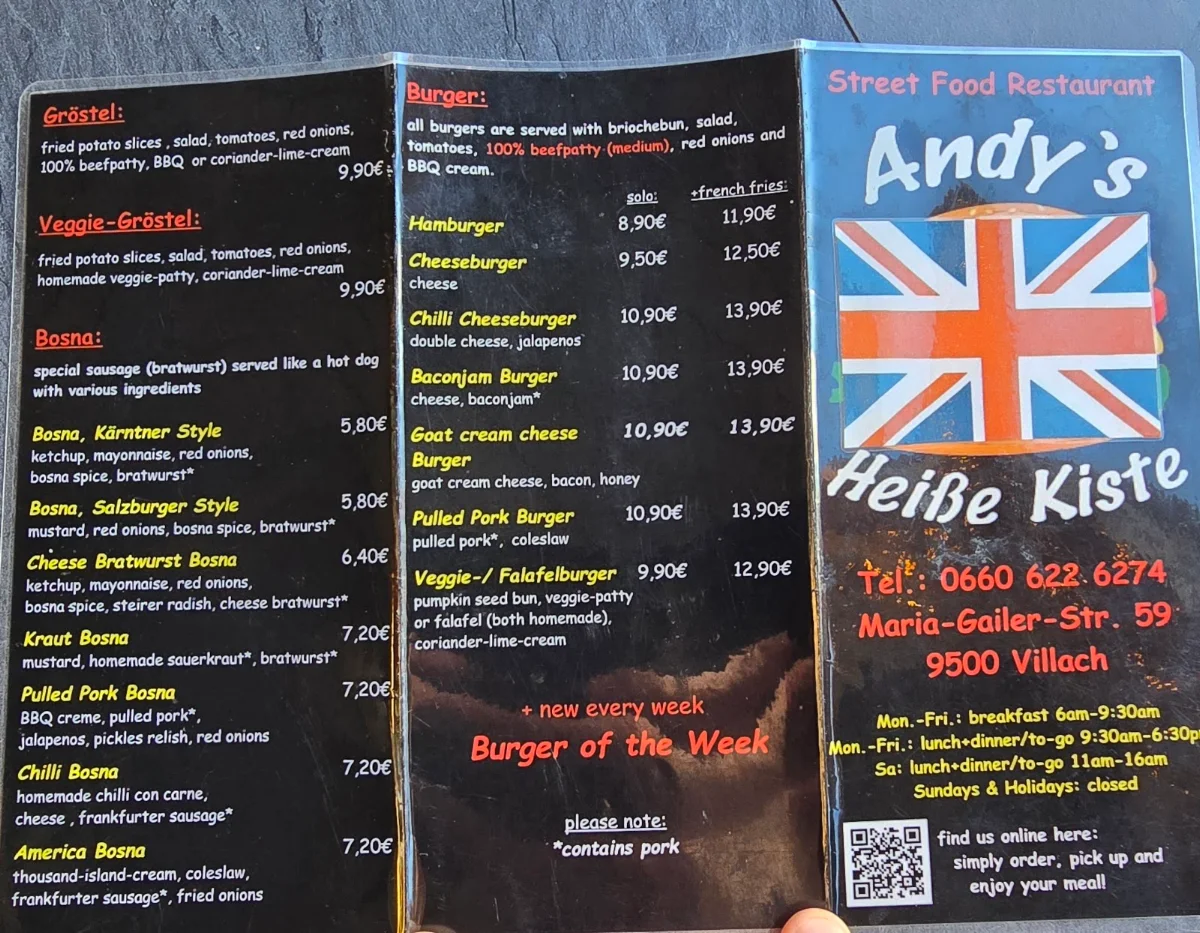 Gröstel:
fried potato slices , salad, tomatoes, red onions,
100% beefpatty, BBQ or coriander-lime-cream
9,90€
Veggie-Gröstel:
fried potato slices, salad, tomatoes, red onions,
homemade veggie-patty, coriander-lime-cream
9,90€
Bosna:
special sausage (bratwurst) served like a hot dog
with various ingredients
Bosna, Kärntner Style 5,80€
ketchup, mayonnaise, red onions,
bosna spice, bratwurst*
Bosna, Salzburger Style 5,80€
mustard, red onions, bosna spice, bratwurst*
Cheese Bratwurst Bosna 6,40€
ketchup, mayonnaise, red onions,
bosna spice, steirer radish, cheese bratwurst*
Kraut Bosna 7,20€
mustard, homemade sauerkraut*, bratwurst*
Pulled Pork Bosna 7,20€
BBQ creme, pulled pork*,
jalapenos, pickles relish, red onions
Chilli Bosna 7,20€
homemade chilli con carne,
cheese , frankfurter sausage*
America Bosna 7,20€
thousand-island-cream, coleslaw,
frankfurter sausage*, fried onions
Burger:
all burgers are served with briochebun, salad,
tomatoes, 100% beefpatty (medium), red onions and
BBQ cream.
solo: +french fries:
Hamburger 8,90€ 11,90€
Cheeseburger 9,50€ 12,50€
cheese
Chilli Cheeseburger 10,90€ 13,90€
double cheese, jalapenos
Baconjam Burger 10,90€ 13,90€
cheese, baconjam*
Goat cream cheese 10,90€ 13,90€
Burger
goat cream cheese, bacon, honey
Pulled Pork Burger 10,90€ 13,90€
pulled pork*, coleslaw
Veggie-/ Falafelburger 9,90€ 12,90€
pumpkin seed bun, veggie-patty
or falafel (both homemade),
coriander-lime-cream
+ new every week
Burger of the Week
please note:
*contains pork
Street Food Restaurant
Andy's
Heiße Kiste
Tel.: 0660 622 6274
Maria-Gailer-Str. 59
9500 Villach
Mon.-Fri.: breakfast 6am-9:30am
Mon.-Fri.: lunch+dinner/to-go 9:30am-6:30p
Sa: lunch+dinner/to-go 11am-16am
Sundays & Holidays: closed
find us online here:
simply order, pick up and
enjoy your meal!